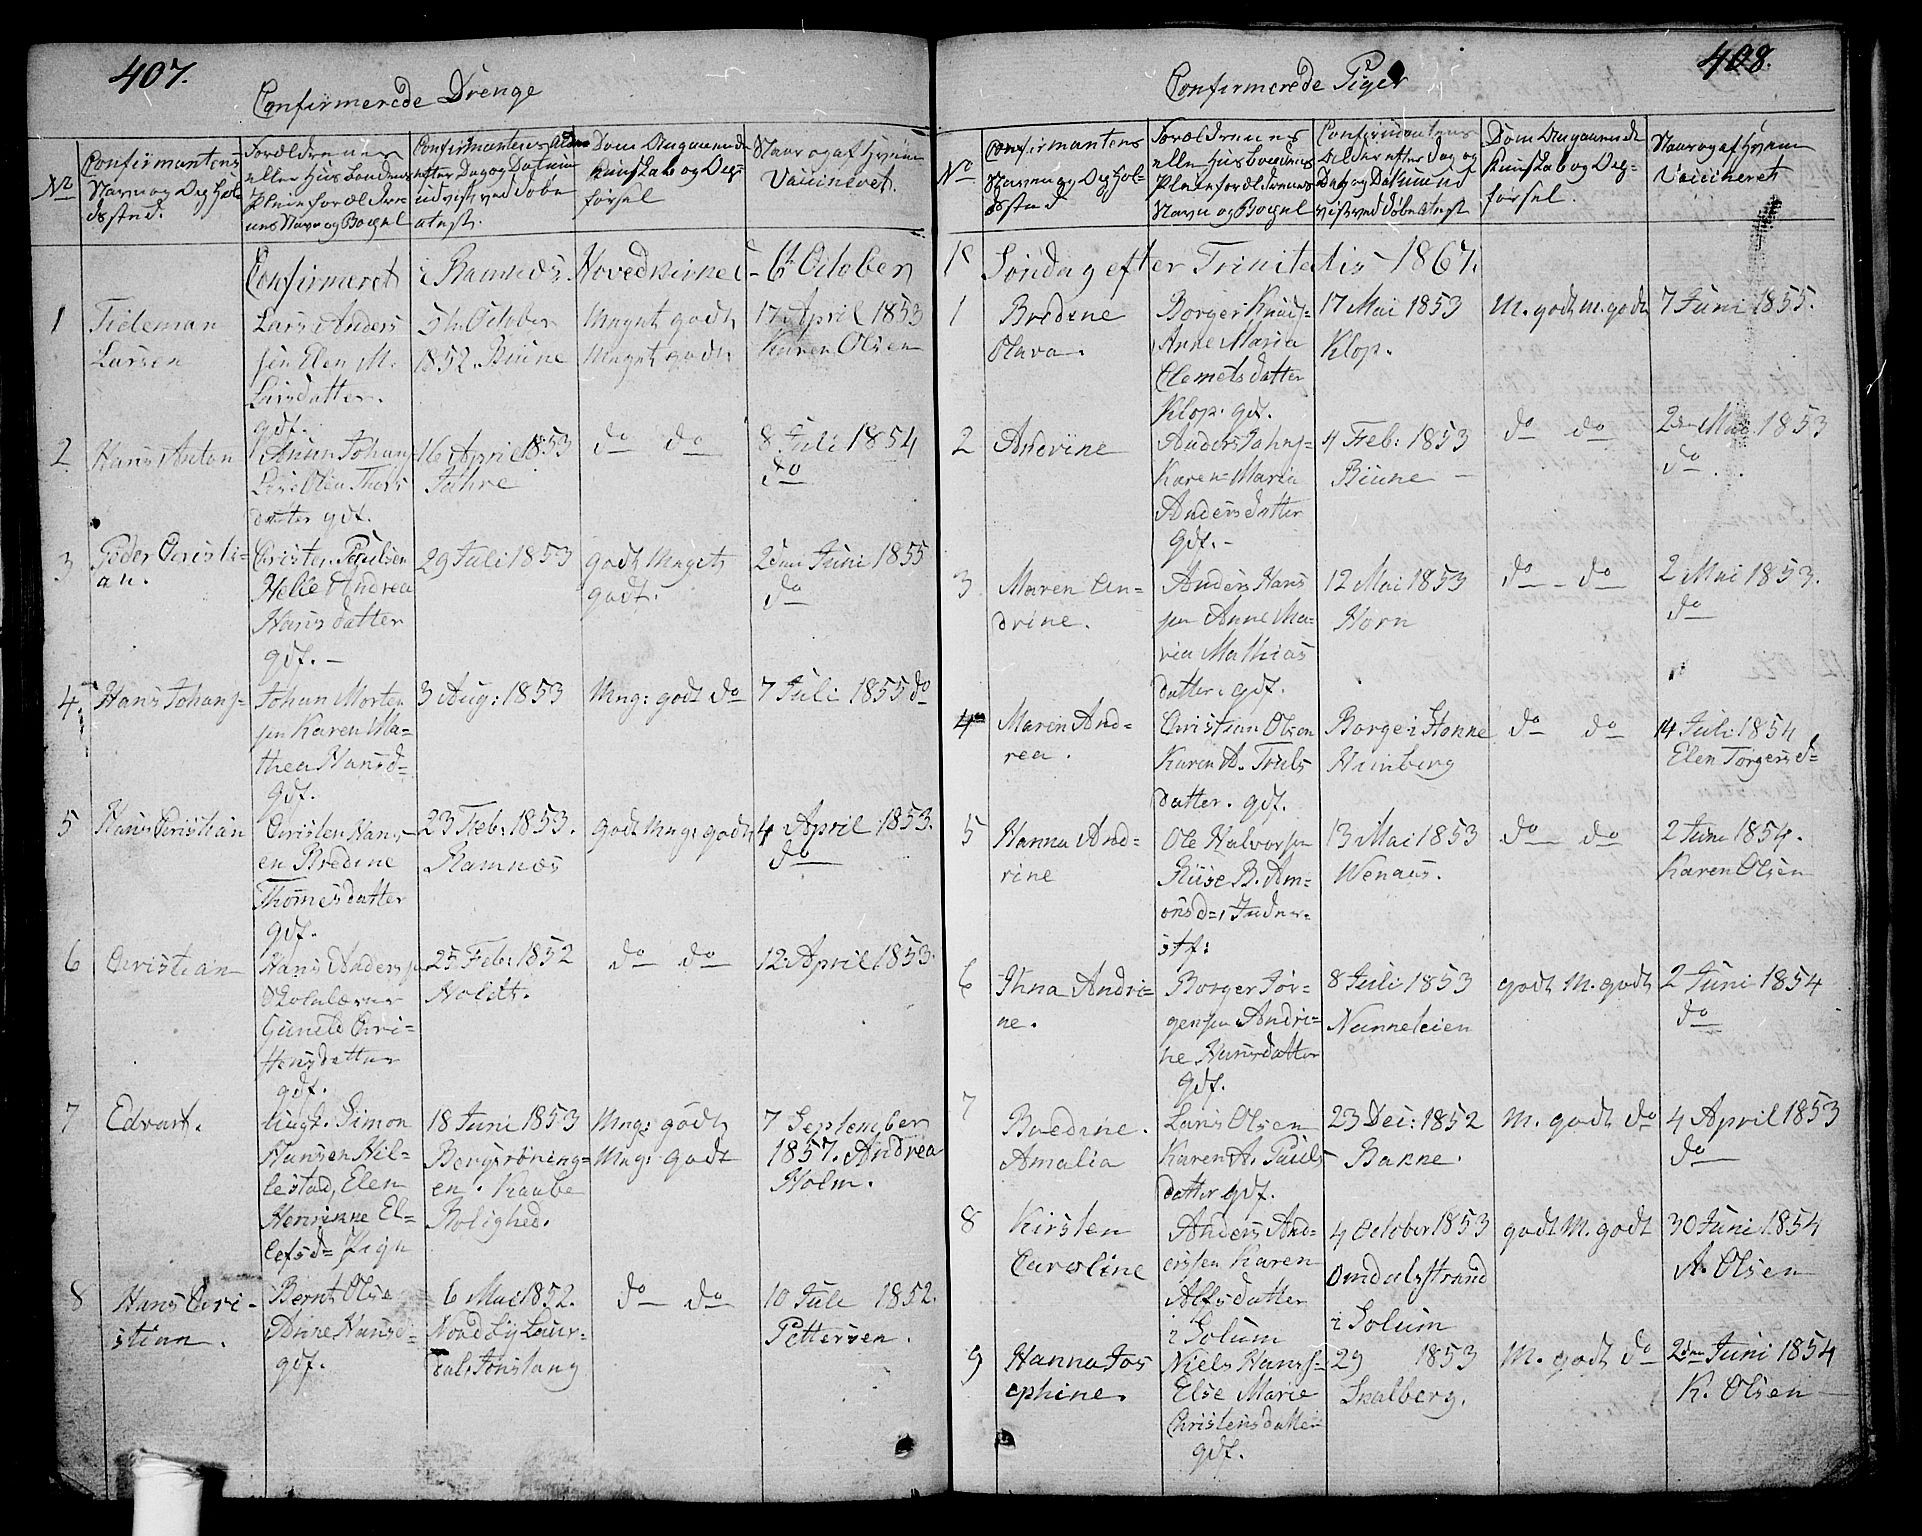 407.
Confirmerede Drenge
No
Confirmantens
Navn og Ophol-
dssted.
Forældrenes
eller Husbondens
Pleieforældre-
nes Navn og Bopæl
Confirmantens Alder
efter Dag og Datum
udvist ved Døbe
attest.
Dom Angaaende
Kundskab og Op-
førsel
Naar og af Hvem
Vaccineret.
Confirmeret i Ramnæs Hovedkirke d. 6 October
1 Tideman
Larsen
Lars Anders
sen Elen M.
Larsdatter.
gdf.
5 October
1852. Biune
Meget godt
Meget godt
17 April 1853
Karen Olsen
2 Hans Anton
Johan
Olea Thors
datter gdf.
16 April 1853
do do
8 Juli 1854
do
3 Peder Christi-
an.
Christen Paulsen
Helle Andrea
Hansdatter
gdf. –
29 Juli 1853
godt Meget
godt.
2den Juni 1855
do
4 Hans Johans-
Johan Morten
sen Karen Ma-
thea Hansd-
gdf.
3 Aug: 1853
Mng: godt do
7 Juli 1855 do
5 Hans Christian
Christen Hans-
en Bredine
Thomesdatter
gdf.
23 Feb: 1853.
Ramnæs
godt Mng: godt
4 April 1853.
do
6 Christian
Hans Anders
Skolelærer
Gunild Chri-
stensdatter
gdf.
25 Feb: 1852
Holdt.
do do
12. April 1853.
7 Edvart.
Ungt. Simon
Hansen Hil-
lestad, Elen
Henrikke El-
lefsd= Pige
18 Juni 1853
Mng: godt
Mng: godt
7 September
1857. Andrea
Holm.
Bolighed.
8 Hans Chri-
stian.
Bernt Olse
Anne Hansd-
gdf.
6 Mai 1852.
do do
10 Juli 1852.
Pettersen.
408.
Confirmerede Piger
No
Confirmantens
Navn og Ophol-
dssted
Forældrenes
eller Husbondens
Pleieforældrenes
Navn og Bopæl
Confirmantens
Alder efter Dag og
Dag og Datum ud
vist ved Døbeattest
Dom Angaaende
Kundskab og Op-
førsel.
Naar og af Hvem
Vaccineret
18 Søndag efter Trinitatis 1867.
1 Bredine
Olava.
Borger Knuds-
Anne Maria
Clemetsdatter
Klop. gdf.
17 Mai 1853
Klop.
M. godt M. godt
7 Juni 1855.
2 Andrine
Anders Johns-
Karen Maria
Andersdatter
gdf. –
4 Feb: 1853
Biune –
do do
2den Mai 1853
do
3 Maren An-
drine.
Anders Hans
sen Anne Ma-
ria Mathias
datter. gdf.
12 Mai 1853
Horn
do - do
2 Mai 1853.
do
4 Maren And-
rea.
Christian Olsen
Karen A. Truls
datter. gdf.
Borge i Stonne
Heinberg
do do
14 Juli 1854
Elen Torgersd-
5 Hanna And-
rine
Ole Halvorsen
B. Am-
onsd-, Inder-
st:
13 Mai 1853
Wenaus.
do do
2 Juni 1854.
Karen Olsen
6 Ihna Andri-
ne.
Borger Jør-
gensen Andri-
ne Hansdatter
gdf.
8 Juli 1853
Nanneteien
godt M. godt
2 Juni 1854
do
7 Bredine.
Amalia
Lars Olsen
Karen A. Pauls
datter gdf.
23 Dec: 1852
Bakne.
M. godt do
4 April 1853
do
8 Kirsten
Caroline
Anders And-
ersen Karen
Alfsdatter
i Solum
4 October 1853
Omdalsstrand
i Solum
godt M. godt
30 Juni 1854
A. Olsen
9 Hanna Jos
ephine.
Niels Hanss-
Else Marie
Christensdatter
gdf.
29 1853
Skalberg.
M. godt do
2den Juni 1854
K. Olsen